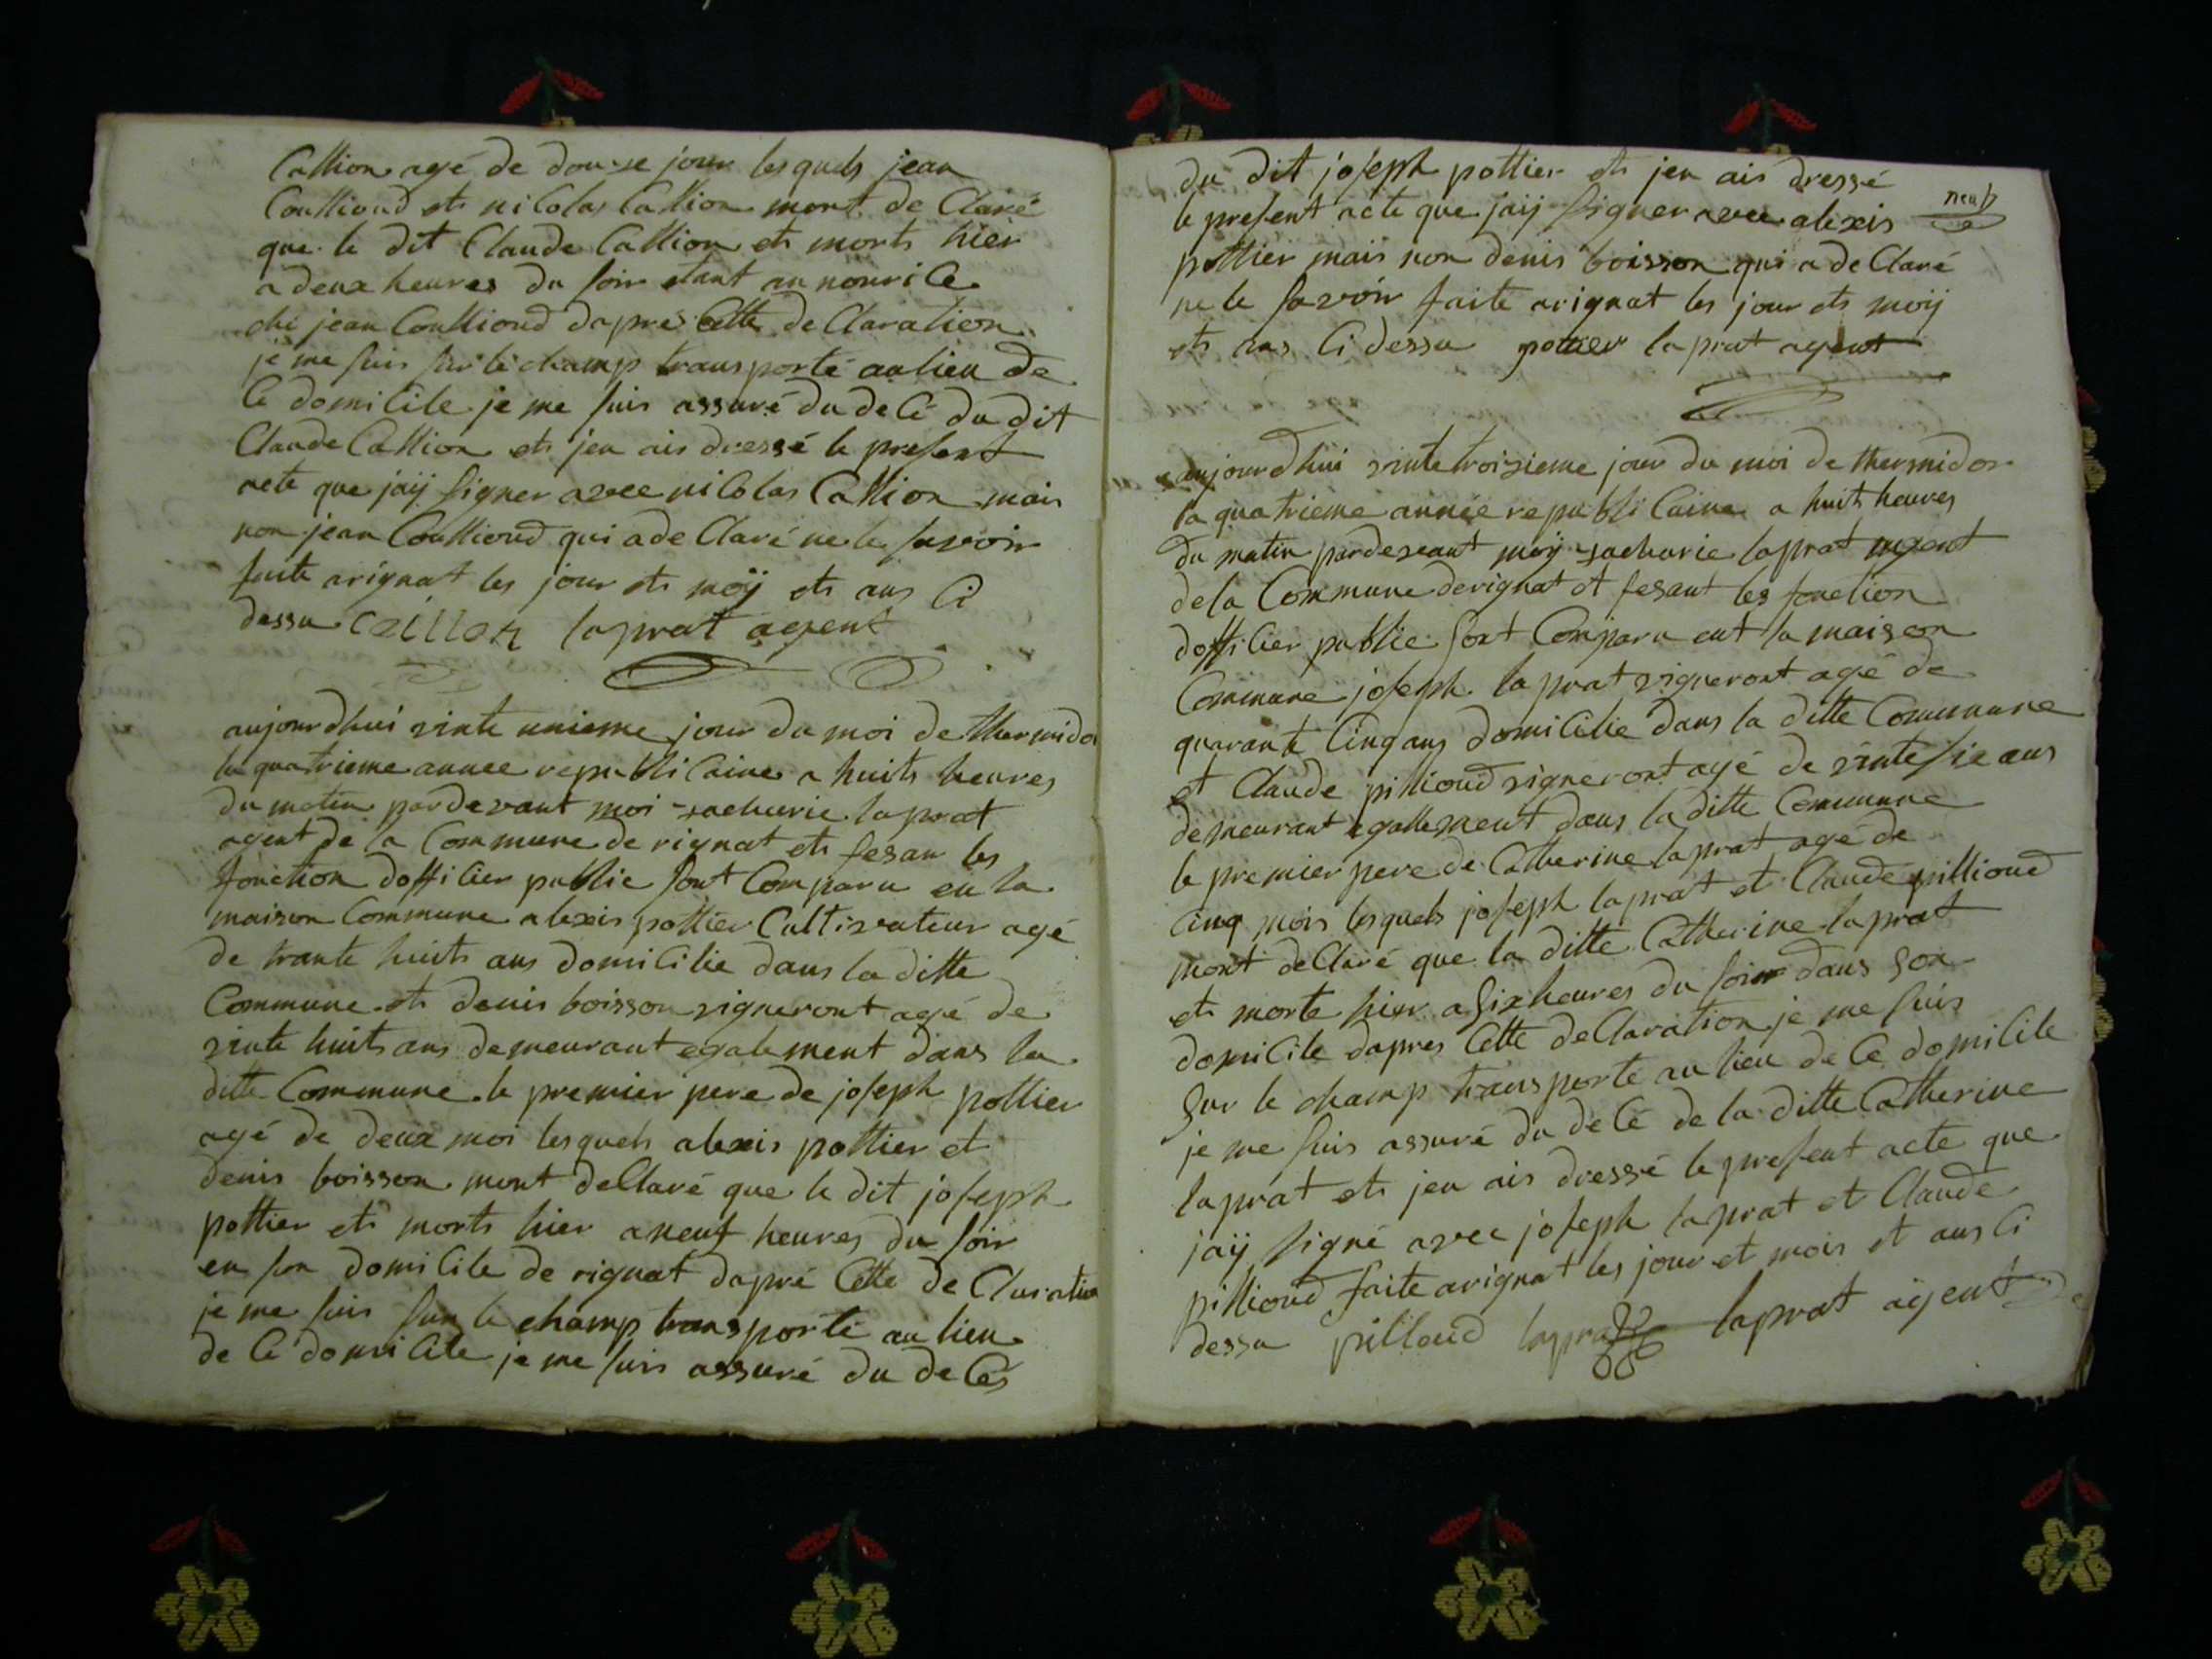 Callion agé de douze jour lesquels jean
Coullioud ets nicolas Callion mont de Claré
que le dit Claude Callion ets morts hier
a deux heures du soir etant an nourice
ché jean Coullioud dapre Cette de Claration
je me suis sur le champ transporté au lieu de
Ce domicile je me suis assuré du de Cé du dit
Claude Callion ets jen ais dressé le present
acte que jaÿ signer avec nicolas Callion mais
non jean Coullioud qui a de Claré ne le savoir
faite arignat les jour ets moÿ ets ans Ci
dessu Caillon laprat agent
aujourdhui vinte unieme jour du moi de thermido
la quatrieme annee republicaine a huits heures
du matin pardevant moi zacharie laprat
agent de la Commune de rignat ets fesan les
fonction dofficier public sont Comparu en la
maison Commune alexis pottier Cultivateur agé
de trante huits ans domicilie dans la ditte
Commune ets denis boisson vigneront agé de
vinte huits ans demeurant egalement dans la
ditte Commune le premier pere de joseph pottier
agé de deux moi lesquels alexis pottier et
denis boisson mont declaré que le dit joseph
pottier ets morts hier a neuf heures du soir
en son domicile de rignat dapré Cette de Claration
je me suis sur le champ transporté au lieu
de Ce domicile je me suis assuré du de Cés
du dit joseph pottier ets jen ais dressé
neuf
le present acte que jaij signer avec alexis
pottier mais non denis boisson qui a de Claré
ne le savoir faite arignat les jour ets moij
ets ans Ci dessu pottier laprat agent
aujourdhui vinte troisieme jour du moi de thermidor
la quatrieme année republicaine a huits heures
du matin pardevant moij zacharie laprat agent
dela Commune derignat et fesant les fonction
dofficier public sont Comparu ent la maison
Commune joseph laprat vigneront agé de
quarante Cinq ans domicilie dans la ditte Commune
et Claude pillioud vigneront agé de vinte sie ans
demeurant egallement dans la ditte Commune
le premier pere de Catherine laprat agé de
Cinq mois lesquels joseph laprat et Claude pillioud
mont declaré que la ditte Catherine laprat
ets morte hier a six heures du soir dans son
domicile dapres Cette declaration je me suis
sur le champ transporté au lieu de Ce domicile
je me suis assuré du de Cé de la ditte Catherine
laprat ets jen ais dressé le present acte que
jaij signé avec joseph laprat et Claude
pillioud faite arignat les jour et mois et ans Ci
dessu pilloud laprat laprat agent